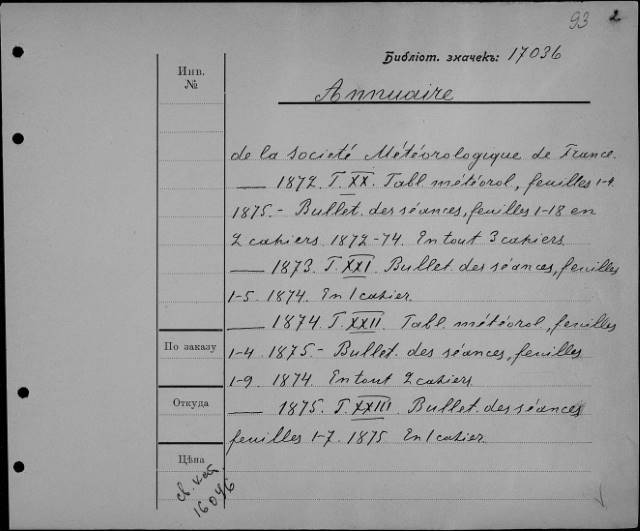 93 2
Библіот. значекъ: 17036
Инв.
№
Annuaire
de la Societé Météorologique de France.
— 1872. T. XX. Tabl. météorol., feuilles 1-4.
1875. - Bullet. des séances, feuilles 1-18 en
2 cahiers. 1872-74. En tout 3 cahiers.
— 1873. T. XXI. Bullet. des séances, feuilles
1-5. 1874. En 1 cahier.
— 1874. T. XXII. Tabl. météorol., feuilles
По заказу
1-4. 1875. - Bullet. des séances, feuilles
1-9. 1874. En tout 2 cahiers
Откуда
— 1875. T. XXIII. Bullet. des séances
feuilles 1-7. 1875. En 1 cahier.
Цѣна
св. кат.
16046